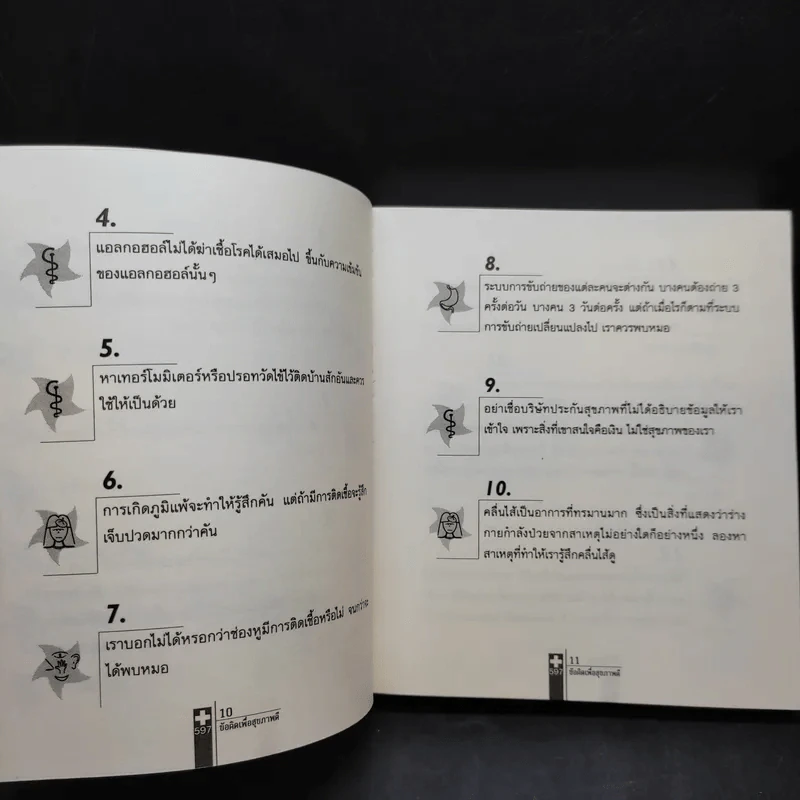 4.
แอลกอฮอล์ไม่ได้ฆ่าเชื้อโรคได้เสมอไป ขึ้นกับความเข้มข้น
ของแอลกอฮอล์นั้นๆ
5.
หาเทอร์โมมิเตอร์หรือปรอทวัดไข้ไว้ติดบ้านสักอันและควร
ใช้ให้เป็นด้วย
6.
การเกิดภูมิแพ้จะทำให้รู้สึกคัน แต่ถ้ามีการติดเชื้อจะรู้สึก
เจ็บปวดมากกว่าคัน
7.
เราบอกไม่ได้หรอกว่าช่องหูมีการติดเชื้อหรือไม่ จนกว่าจะ
ได้พบหมอ
597
10
ข้อผิดเพื่อสุขภาพดี
8.
ระบบการขับถ่ายของแต่ละคนจะต่างกัน บางคนต้องถ่าย 3
ครั้งต่อวัน บางคน 3 วันต่อครั้ง แต่ถ้าเมื่อไรก็ตามที่ระบบ
การขับถ่ายเปลี่ยนแปลงไป เราควรพบหมอ
9.
อย่าเชื่อบริษัทประกันสุขภาพที่ไม่ได้อธิบายข้อมูลให้เรา
เข้าใจ เพราะสิ่งที่เขาสนใจคือเงิน ไม่ใช่สุขภาพของเรา
10.
คลื่นไส้เป็นอาการที่ทรมานมาก ซึ่งเป็นสิ่งที่แสดงว่าร่าง
กายกำลังป่วยจากสาเหตุไม่อย่างใดก็อย่างหนึ่ง ลองหา
สาเหตุที่ทำให้เรารู้สึกคลื่นไส้ดู
597
11
ข้อผิดเพื่อสุขภาพดี